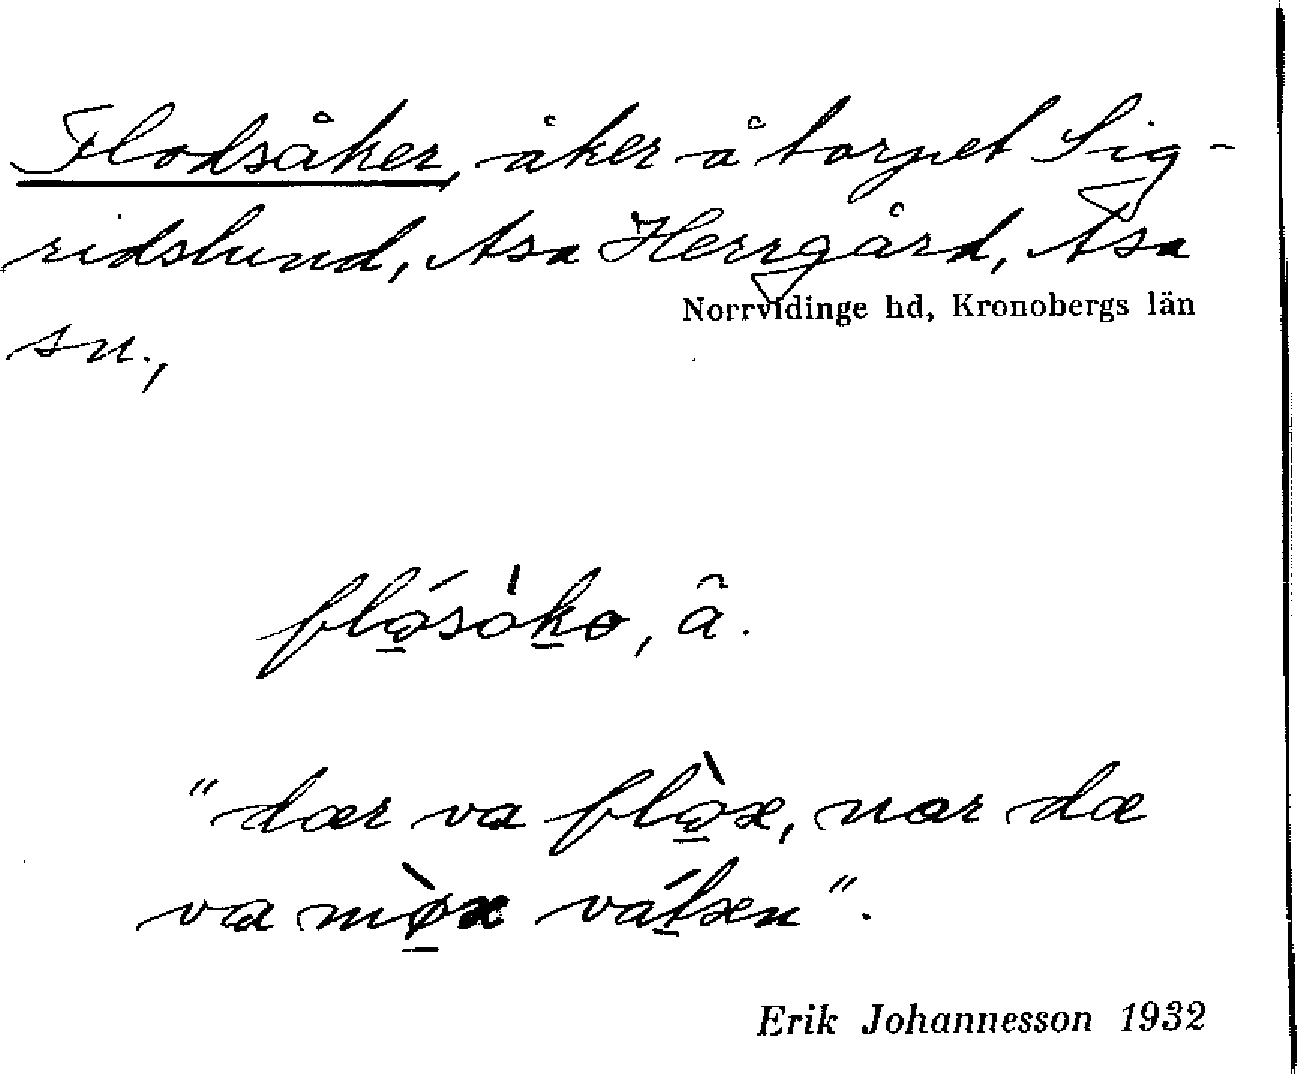 Flodsåker, åker å torpet Sig-
ridslund, Asa Herrgård, Asa
Norrvidinge hd, Kronobergs län
sn.,
flǫ́såko, â.
"dær va flǫ̀æ, nær dæ
va mø̀æ vátæn".
Erik Johannesson 1932